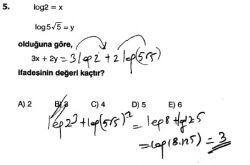 5. log2 = x
log5√5 = y
olduğuna göre,
3x + 2y = 3 log2 + 2 log(5√5)
ifadesinin değeri kaçtır?
A) 2 B) 3 C) 4 D) 5 E) 6
log2³ + log(5√5)² = log8 + log125
= log(8.125) = 3